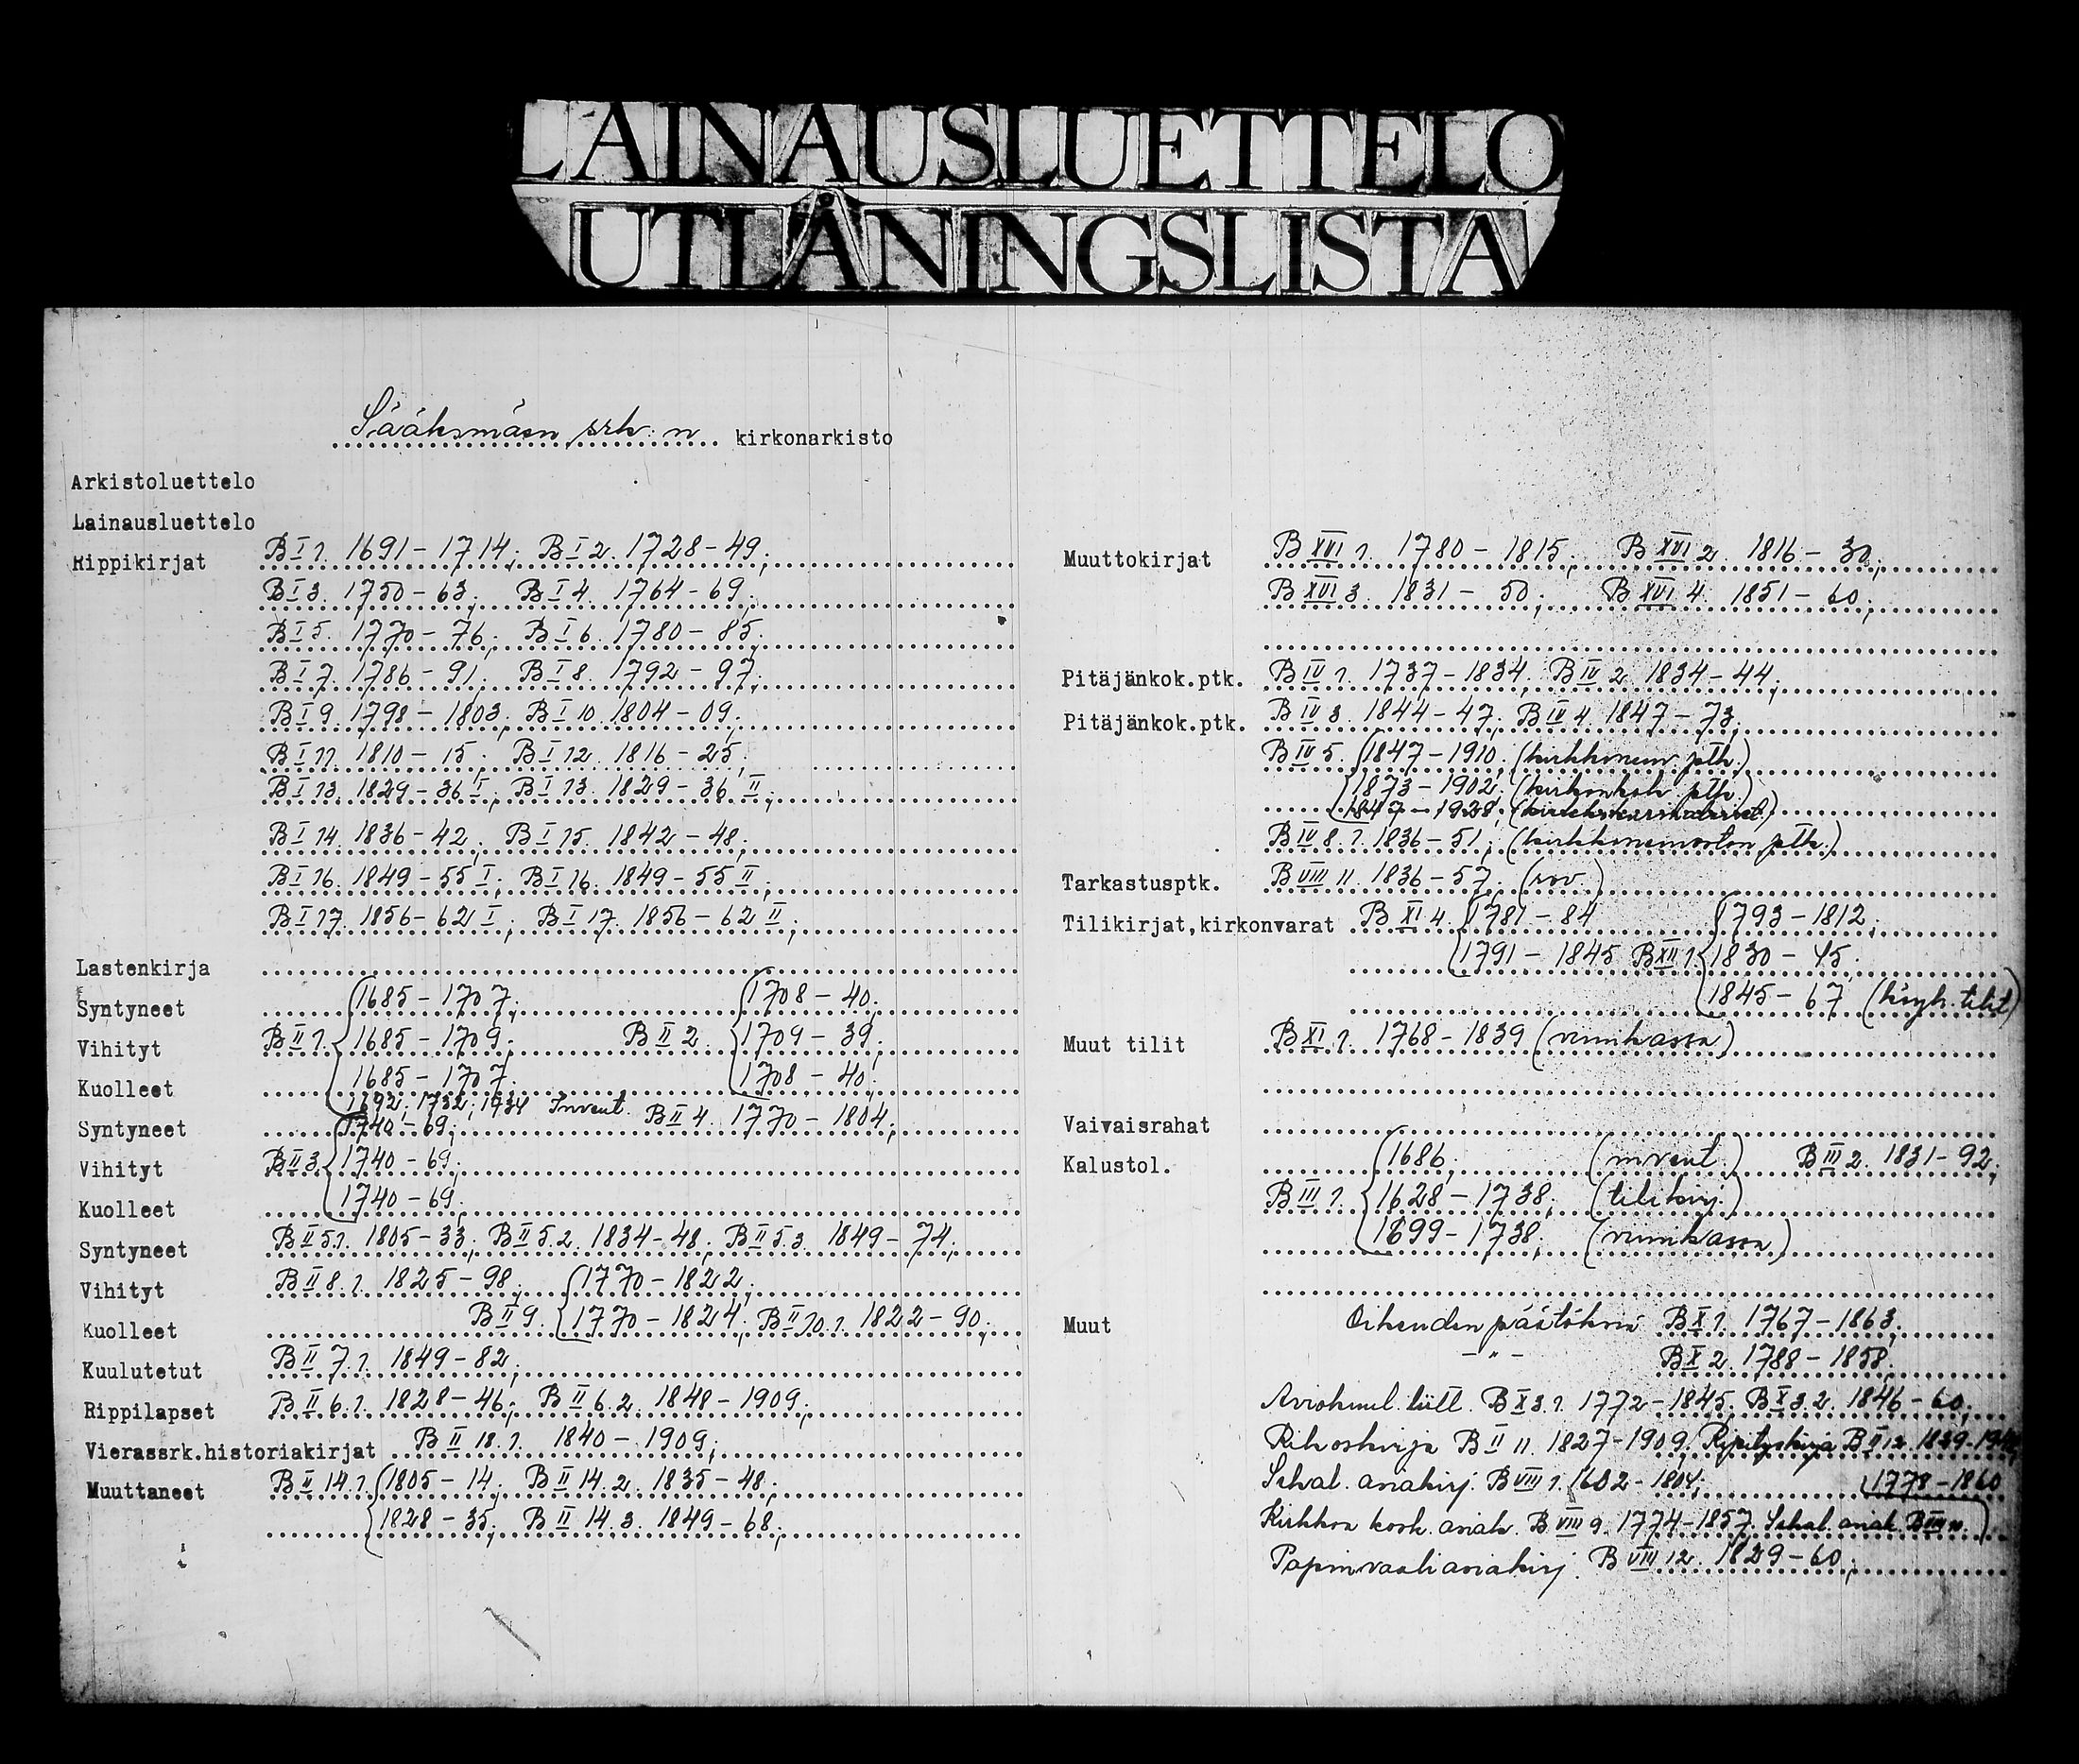 LAINAUSLUETTELO
UTLÅNINGSLISTA
Sääksmäen srk:n kirkonarkisto
Arkistoluettelo
Lainausluettelo
Rippikirjat B I 1. 1691-1714; B I 2. 1728-49;
B I 3. 1750-63; B I 4. 1764-69;
B I 5. 1770-76; B I 6. 1780-85;
B I 7. 1786-91; B I 8. 1792-97;
B I 9. 1798-1803; B I 10. 1804-09;
B I 11. 1810-15; B I 12. 1816-25;
B I 13. 1829-36 I; B I 13. 1829-36 II;
B I 14. 1836-42; B I 15. 1842-48;
B I 16. 1849-55 I; B I 16. 1849-55 II;
B I 17. 1856-62 I; B I 17. 1856-62 II;
Lastenkirja
Syntyneet 1685-1707; 1708-40;
Vihityt B II 1. 1685-1709; B II 2. 1709-39;
Kuolleet 1685-1707; 1708-40;
1732; 1734 Invent.
Syntyneet 1740-69; B II 4. 1770-1804;
Vihityt B II 3. 1740-69;
Kuolleet 1740-69;
Syntyneet B II 5.1. 1805-33; B II 5.2. 1834-48; B II 5.3. 1849-74;
Vihityt B II 8.1. 1825-98; 1770-1822;
Kuolleet B II 9. 1770-1824; B II 10.1. 1822-90;
Kuulutetut B II 7.1. 1849-82;
Rippilapset B II 6.1. 1828-46; B II 6.2. 1848-1909;
Vierassrk.historiakirjat B II 18.1. 1840-1909;
Muuttaneet B II 14.1. 1805-14; B II 14.2. 1835-48;
1828-35; B II 14.3. 1849-68;
Muuttokirjat B XVI 1. 1780-1815; B XVI 2. 1816-30;
B XVI 3. 1831-50; B XVI 4. 1851-60;
Pitäjänkok.ptk. B IV 1. 1737-1834; B IV 2. 1834-44;
Pitäjänkok.ptk. B IV 3. 1844-47; B IV 4. 1847-73;
B IV 5. 1847-1910; (kirkkoneuv. ptk.)
1873-1902; (kirkonkok. ptk.)
1847-1928;
B IV 8.1. 1836-51; (kirkkoneuvoston ptk.)
Tarkastusptk. B VIII 11. 1836-57; (rov.)
Tilikirjat,kirkonvarat B XI 4. 1781-84 1793-1812;
1791-1845 B XII 1. 1830-45;
1845-67 (köyh. tilit)
Muut tilit B XI 1. 1768-1839 (viinikassa)
Vaivaisrahat
Kalustol. 1686; (invent.) B III 2. 1831-92;
B III 1. 1628-1738; (tilikirj.)
1699-1738; (viinikassa)
Muut Oikeuden päätöksiä B X 1. 1767-1863;
-"- B X 2. 1788-1858;
Aviokuul. luett. B X 3.1. 1772-1845; B X 3.2. 1846-60;
Rikoskirja B II 11. 1827-1909; Ripityskirja B II 12.
Sekal. asiakirj. B VIII 1. 1602-1804; 1778-1860
Kirkkoa kosk. asiak. B VIII 9. 1774-1857; Sekal. asiak.
Papinvaaliasiakirj. B VIII 12. 1829-60;